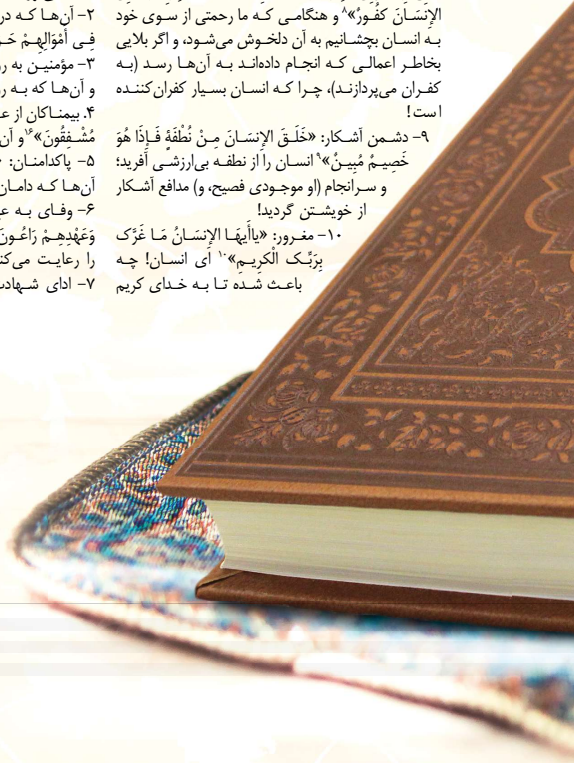 الإِنْسَانَ كَفُورٌ»۸ و هنگامی که ما رحمتی از سوی خود
به انسان بچشانیم به آن دلخوش می‌شود، و اگر بلایی
بخاطر اعمالی که انجام داده‌اند به آن‌ها رسد (به
کفران می‌پردازند)، چرا که انسان بسیار کفران‌کننده
است!
۹- دشمن آشکار: «خَلَقَ الإِنسَانَ مِنْ نُطْفَةٍ فَإِذَا هُوَ
خَصِيمٌ مُبِينٌ»۹ انسان را از نطفه بی‌ارزشی آفرید؛
و سرانجام (او موجودی فصیح، و) مدافع آشکار
از خویشتن گردید!
۱۰- مغرور: «ياأَيهَا الإِنسَانُ مَا غَرَّكَ
بِرَبِّكَ الْكَرِيمِ»۱۰ ای انسان! چه
باعث شده تا به خدای کریم
۲- آن‌ها که در
فِي أَمْوَالِهِمْ
۳- مؤمنین به
و آن‌ها که به
۴. بیمناکان از
مُشْفِقُونَ»۱۶ و
۵- پاکدامنان:
آن‌ها که دامان
۶- وفای به
وَعَهْدِهِمْ رَاعُونَ
را رعایت
۷- ادای